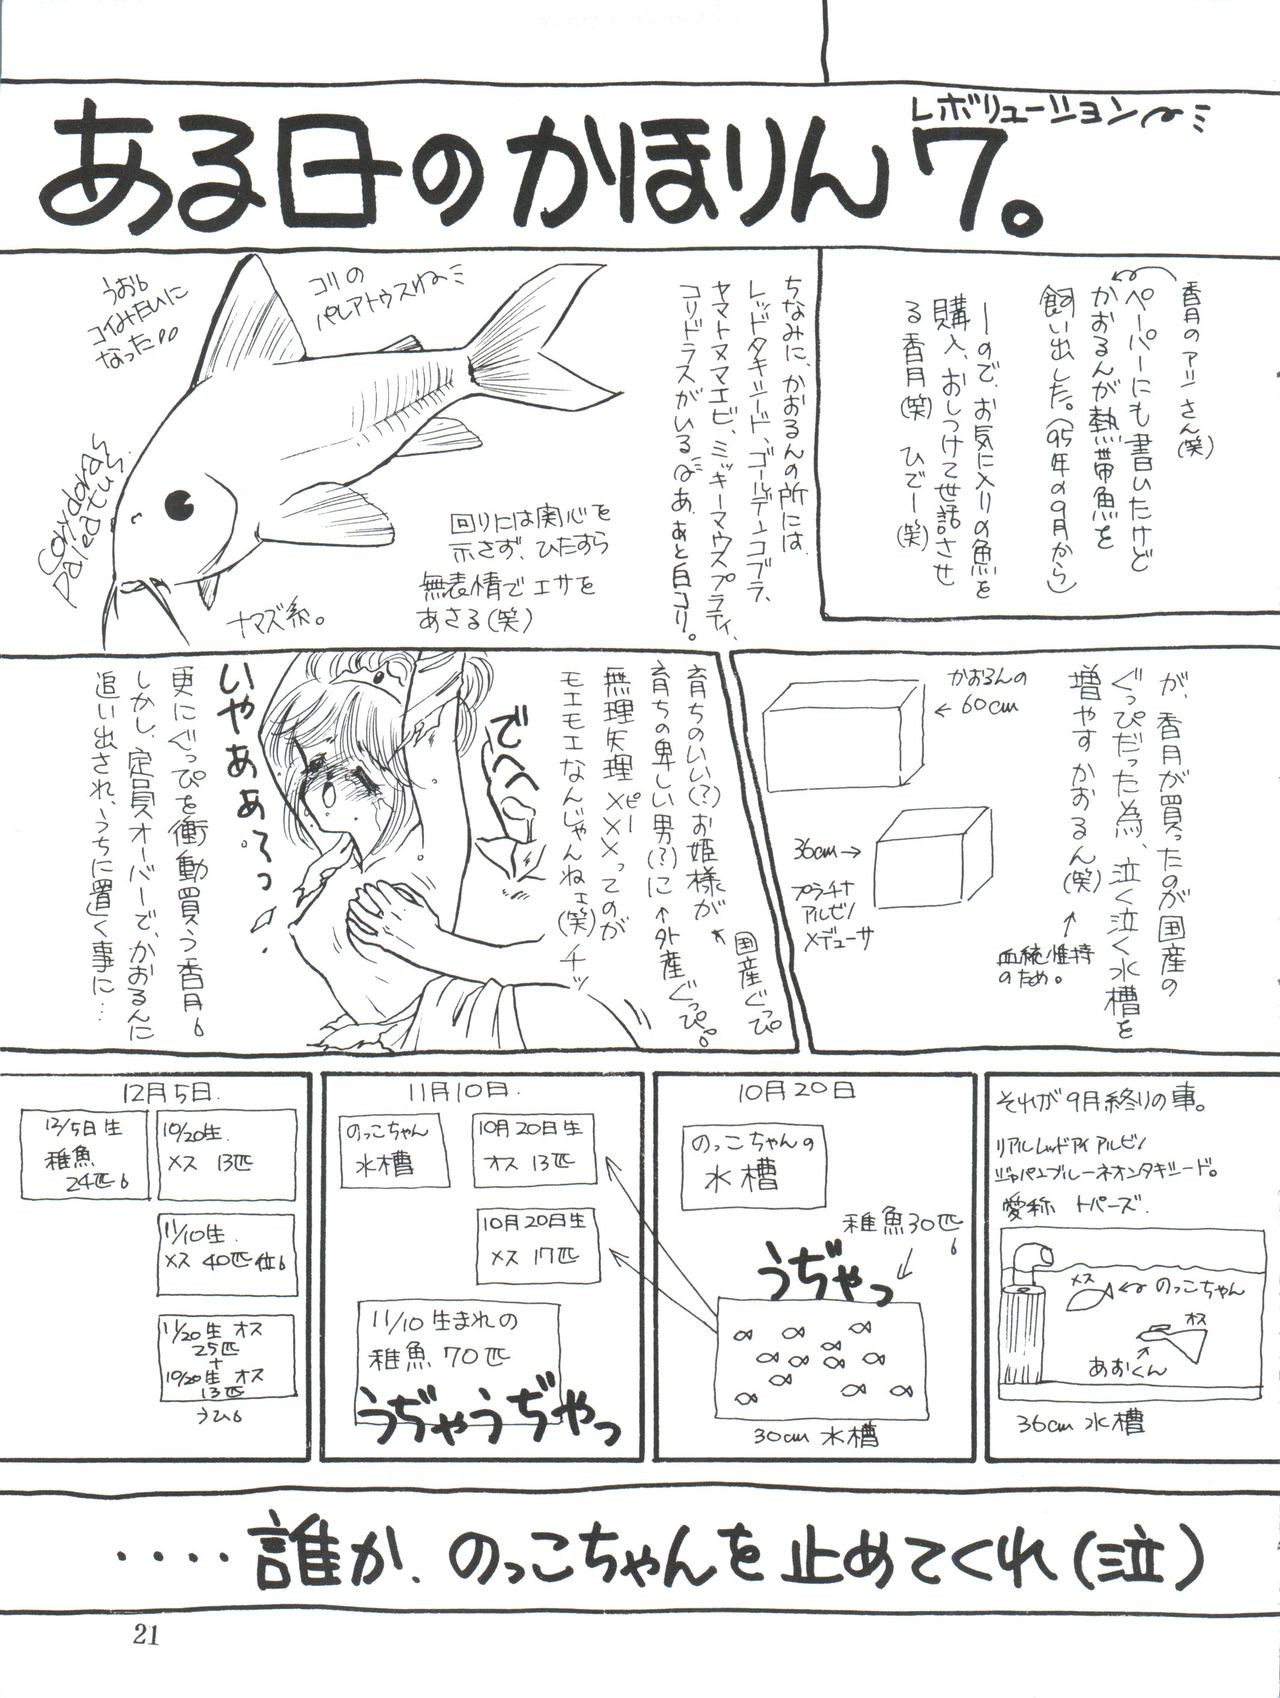 ある日のかほりん7。
レボリューション〜ミ
香月のアツシさん(笑)
ペーパーにも書いたけど
かおるんが熱帯魚を
飼い出した。(95年の9月から)
ーので、お気に入りの魚を
購入、おしつけて世話させ
る香月(笑) ひでー(笑)
ちなみに、かおるんの所には
レッドタキシード、ゴールデンコブラ、
ヤマトヌマエビ、ミッキーマウスプラティ、
コリドラスがいる〜ミ あ、あと白コリ。
コリの
パレアトゥスねーミ
うおっ
コイみたいに
なった
corydoras
paleatus
回りには関心を
示さず、ひたすら
無表情でエサを
あさる(笑)
ナマズ系。
が、香月が買ったのが国産の
ぐっぴだった為、泣く泣く水槽を
増やすかおるん(笑)
↑
血統維持
のため。
かおるんの
←60cm
36cm→
プラチナ
アルビノ
メデューサ
育ちのいい(?)お姫様が
←国産ぐっぴ
育ちの卑しい男(?)に←外産ぐっぴ。
無理矢理××××ってのが
ピー
モエモエなんじゃんねェ(笑) チッ
でへへへ
いやあぁろっ
更にぐっぴを衝動買う香月
しかし、定員オーバーで、かおるんに
追い出され、うちに置く事に…
それが9月終りの事。
リアルレッドアイアルビノ
ジャパンブルーネオンタキシード。
愛称 トパーズ.
メス
のっこちゃん
オス
あおくん
36cm水槽
10月20日
のっこちゃんの
水槽
稚魚30匹
うぢゃっ
30cm水槽
11月10日.
のっこちゃん
水槽
10月20日生
オス 13匹
10月20日生
メス 17匹
11/10生まれの
稚魚70匹
うぢゃうぢゃっ
12月5日.
12/5日生
稚魚
24匹
10/20生.
メス 13匹
11/10生.
メス 40匹位
11/20生 オス
25匹
+
10/20生 オス
13匹
うひ
‥‥誰か、のっこちゃんを止めてくれ(泣)
21